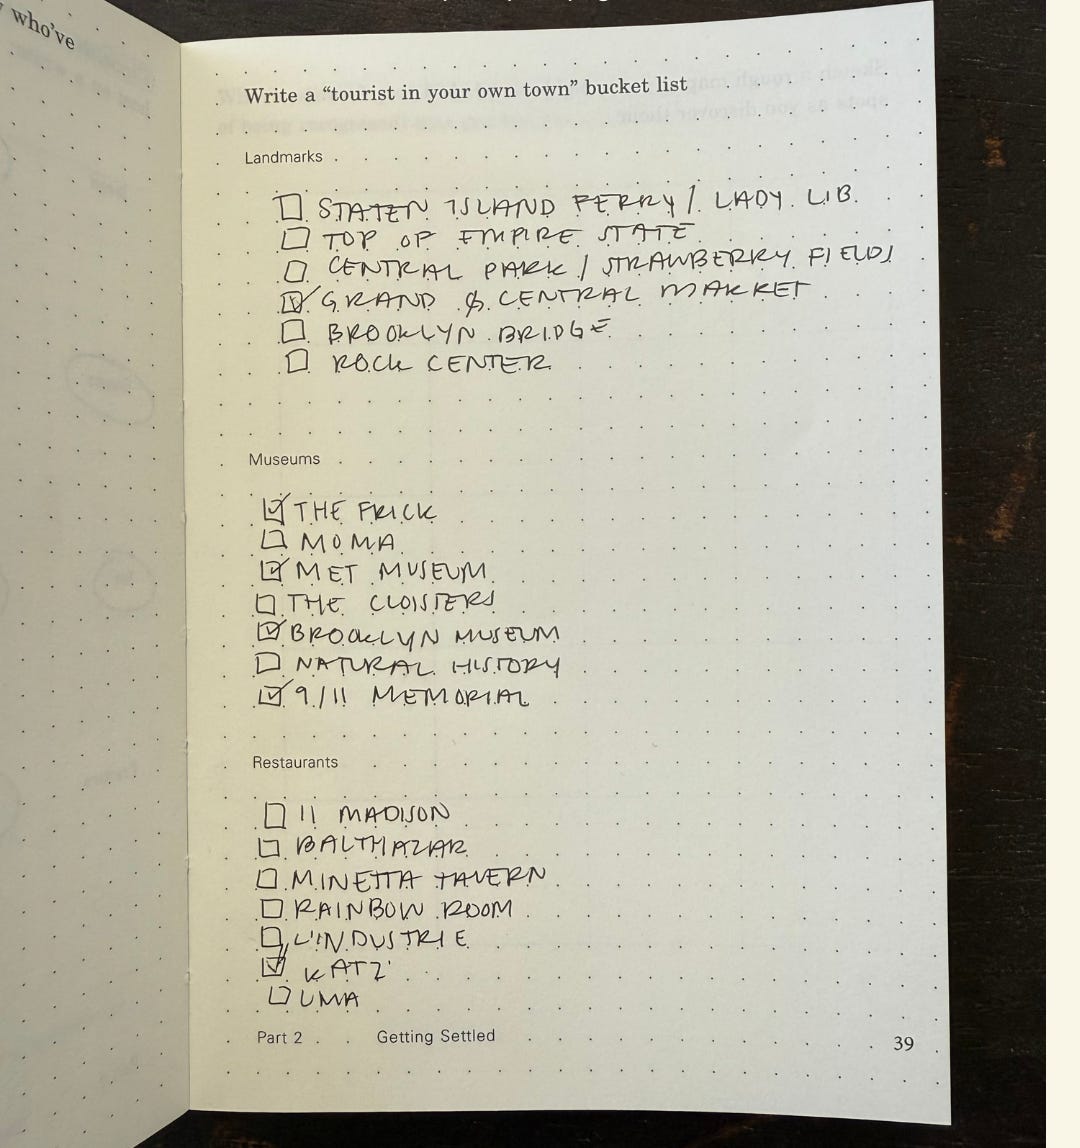 who've
Write a “tourist in your own town” bucket list
Landmarks
STATEN ISLAND FERRY / LADY LIB.
TOP OF EMPIRE STATE
CENTRAL PARK / STRAWBERRY FIELDS
GRAND CENTRAL MARKET
BROOKLYN BRIDGE
ROCK CENTER
Museums
THE FRICK
MOMA
MET MUSEUM
THE CLOISTERS
BROOKLYN MUSEUM
NATURAL HISTORY
9/11 MEMORIAL
Restaurants
11 MADISON
BALTHAZAR
MINETTA TAVERN
RAINBOW ROOM
L'INDUSTRIE
KATZ'
UMA
Part 2 Getting Settled
39